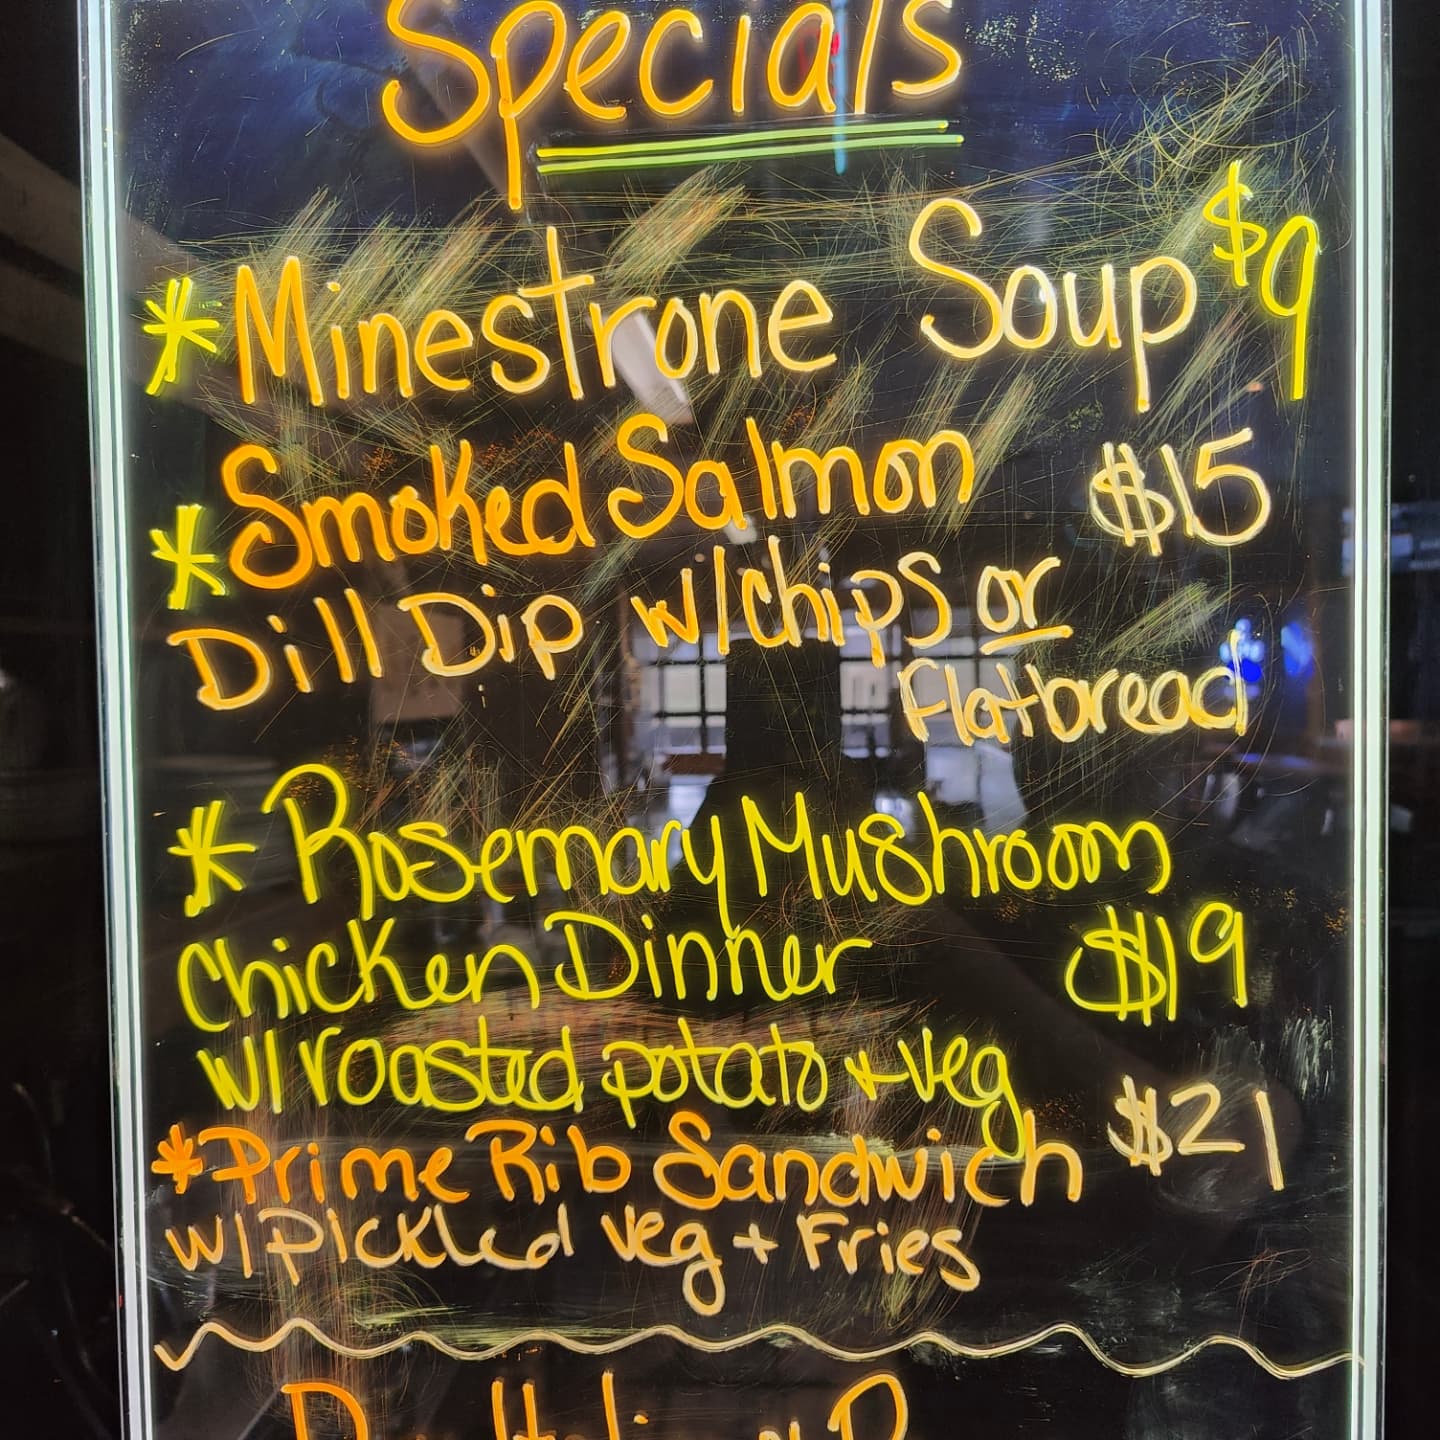 Specials
* Minestrone Soup $9
* Smoked Salmon $15
Dill Dip w/chips or
Flatbread
* Rosemary Mushroom
Chicken Dinner $19
w/roasted potato + veg
* Prime Rib Sandwich $21
w/Pickled veg + Fries